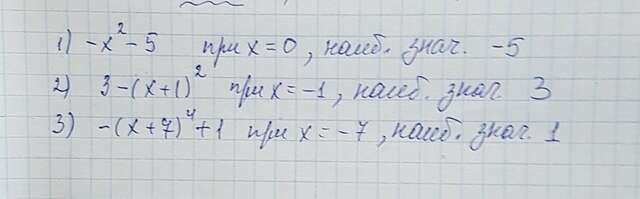 1) -x² - 5 при x = 0, наиб. знач. -5
2) 3 - (x+1)² при x = -1, наиб. знач 3
3) -(x+7)⁴ + 1 при x = -7, наиб. знач. 1